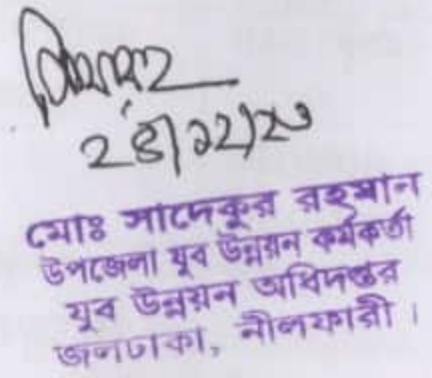 ২৪/১২/২০
মোঃ সাদেকুর রহমান
উপজেলা যুব উন্নয়ন কর্মকর্তা
যুব উন্নয়ন অধিদপ্তর
জলঢাকা, নীলফামারী।